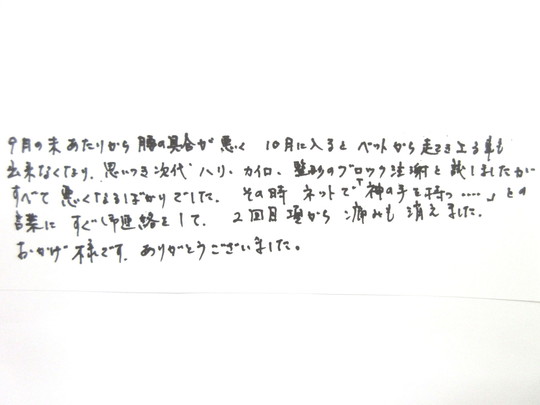 9月の末あたりから腰の具合が悪く 10月に入るとベットから起き上る事も
出来なくなり、思いつき次第ハリ、カイロ、整形のブロック注射と試しましたが
すべて悪くなるばかりでした。その時ネットで「神の手を持つ……」との
言葉にすぐ御連絡をして、2回目頃から痛みも消えました。
おかげ様です。ありがとうございました。